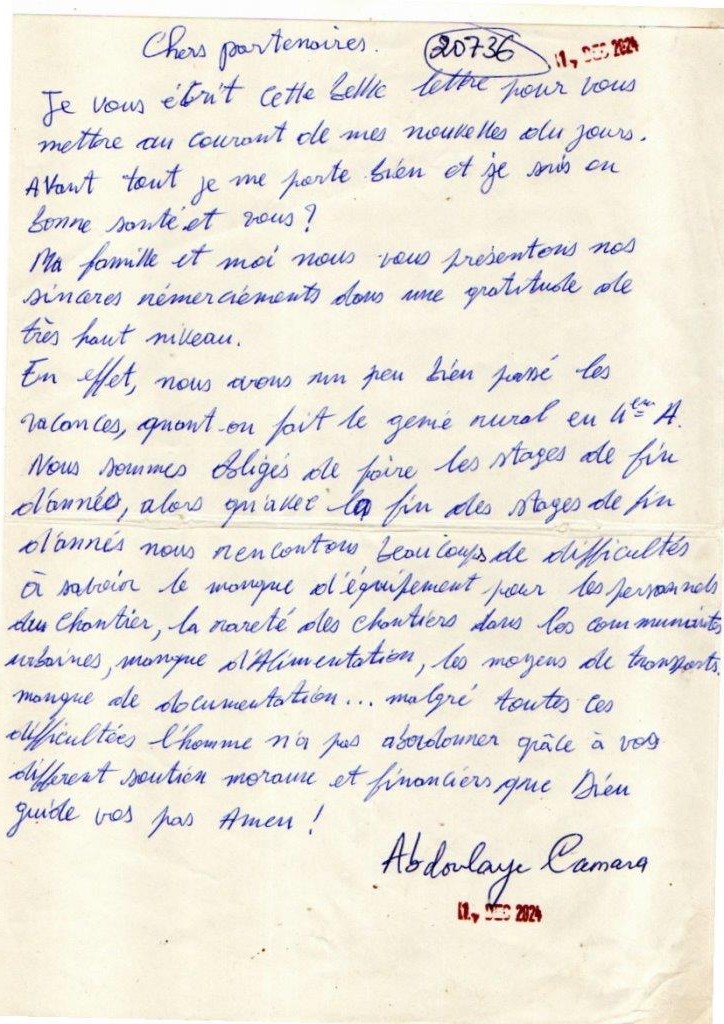 Chers partenaires. 20736 17, DEC 2024
Je vous écrit cette belle lettre pour vous
mettre au courant de mes nouvelles du jours.
Avant tout je me porte bien et je suis en
bonne santé et vous?
Ma famille et moi nous vous présentons nos
sincères rémerciéments dans une gratitude de
très haut niveau.
En effet, nous avons un peu bien passé les
vacances, quant on fait le genie rural en 4em A.
Nous sommes obligés de faire les stages de fin
d'année, alors qu'avec la fin des stages de fin
d'annés nous rencontons beaucoups de difficultés
à savoir le manque d'équipement pour les personnels
du Chantier, la rareté des chantiers dans les communautés
urbaines, manque d'Alimentation, les moyens de transports.
manque de documentation... malgré toutes ces
difficultées l'homme n'a pas abordonner grâce à vos
différent soutien moraux et financiers que Dieu
guide vos pas Amen!
Abdoulaye Camara
DEC 2024